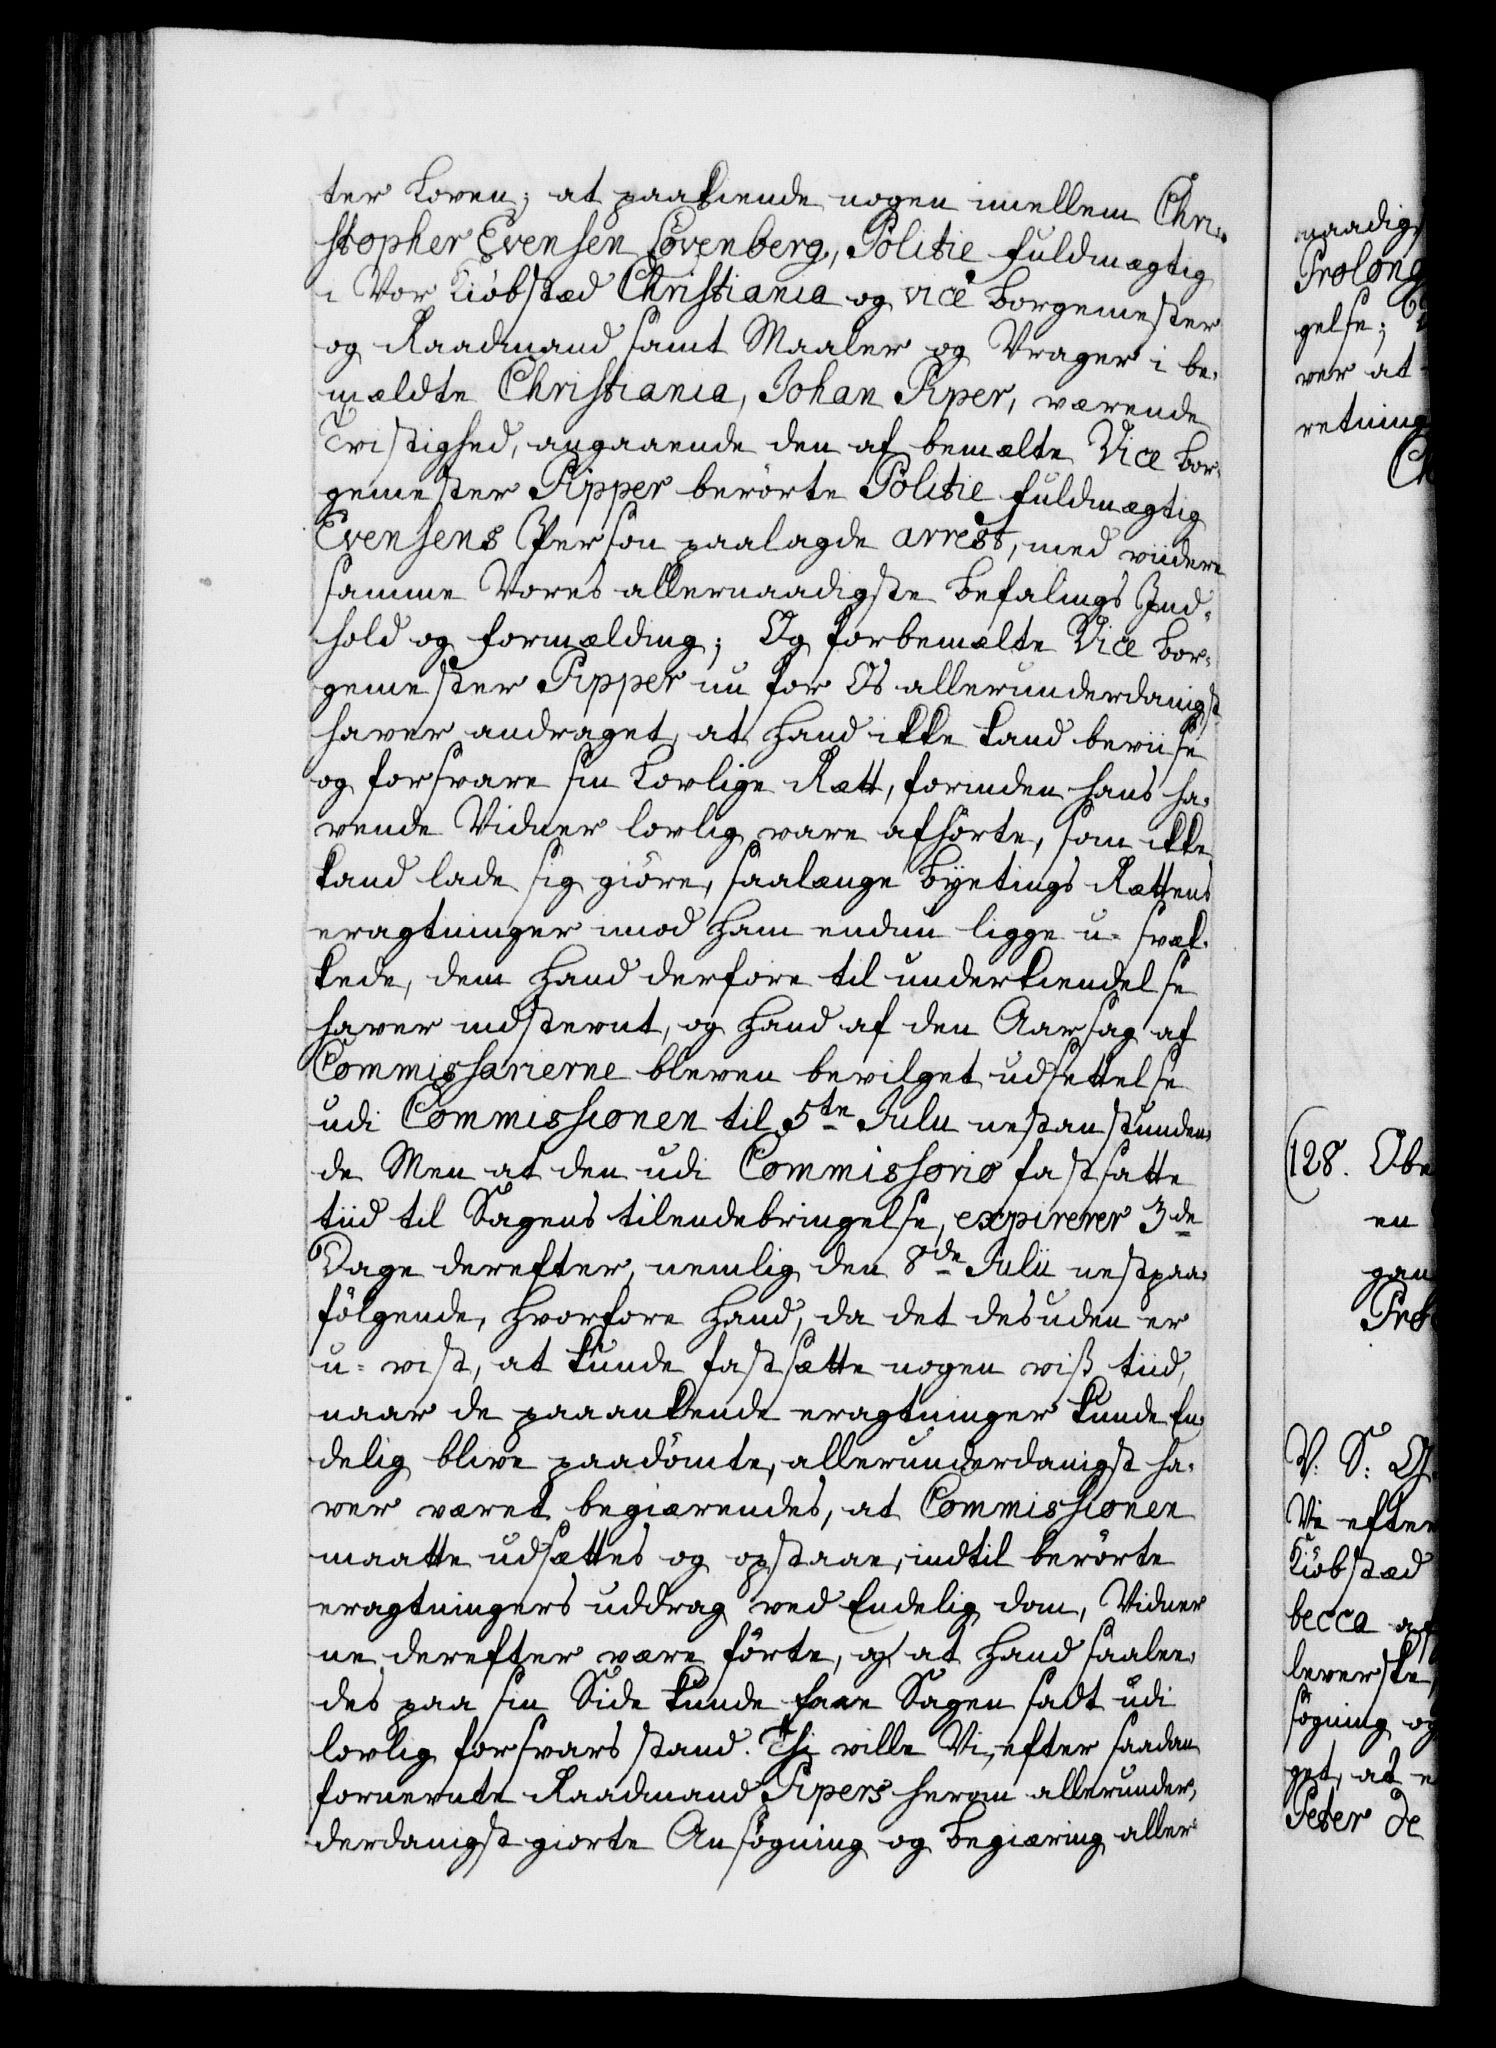 ter Loven; at paakiende nogen imellem Chri-
stopher Evensen Lövenberg, Politie fuldmægtig
i Vor Kiöbstæd Christiania og vice Borgemester
og Raadmand samt Maaler og Vrager i be-
mældte Christiania, Johan Piper, værende
Tvistighed, angaaende den af bemælte Vice Bor-
gemester Pipper berörte Politie fuldmægtig
Evensens Person paalagde arrest, med viidere
samme Vores allernaadigste Befalings Ind-
hold og formælding; Og forbemælte Vice Bor-
gemester Pipper nu for Os allerunderdanigst
haver andraget, at Hand ikke kand beviise
og forsvare sin Lovlige Rætt, forinden hans ha-
vende Vidner lovlig vare afhörte, som ikke
kand lade sig giöre, saalænge Byetings Rættens
eragtninger imod Ham endnu ligge u-svæk-
kede, dem Hand derfore til underkiendelse
haver indstevnt, og Hand af den Aarsag af
Commissarierne bleven bevilget udsettelse
udi Commissionen til 5te Julii nestanstunden-
de Men at den udi Commissorio fastsatte
tiid til Sagens tilendebringelse, expirerer 3de
Dage derefter, nemlig den 8de Julii nestpaa-
fölgende, hvorfore Hand, da det desuden er
u-vist, at kunde fastsætte nogen viß tiid,
naar de paaankende eragtninger kunde En-
delig blive paadömte, allerunderdanigst ha-
ver været begiærendes, at Commissionen
maatte udsættes og opstaae, indtil berörte
eragtningers uddrag ved Endelig dom, Vidner
ne derefter være förte, og at Hand saalee-
des paa sin Side kunde faae Sagen sadt udi
lovlig forsvars stand. Thi ville Vi, efter saadan
fornevnte Raadmand Pipers herom allerunder-
derdanigst giorte Ansögning og Begiæring aller-
naadigs
Prolong
gelse;
ver at
retning
(128. Obe
en
gan
Pro
V: S: G.
Vi efter
Kiöbstæd
becca af
leverske,
sögning og
get, at e
Peter de